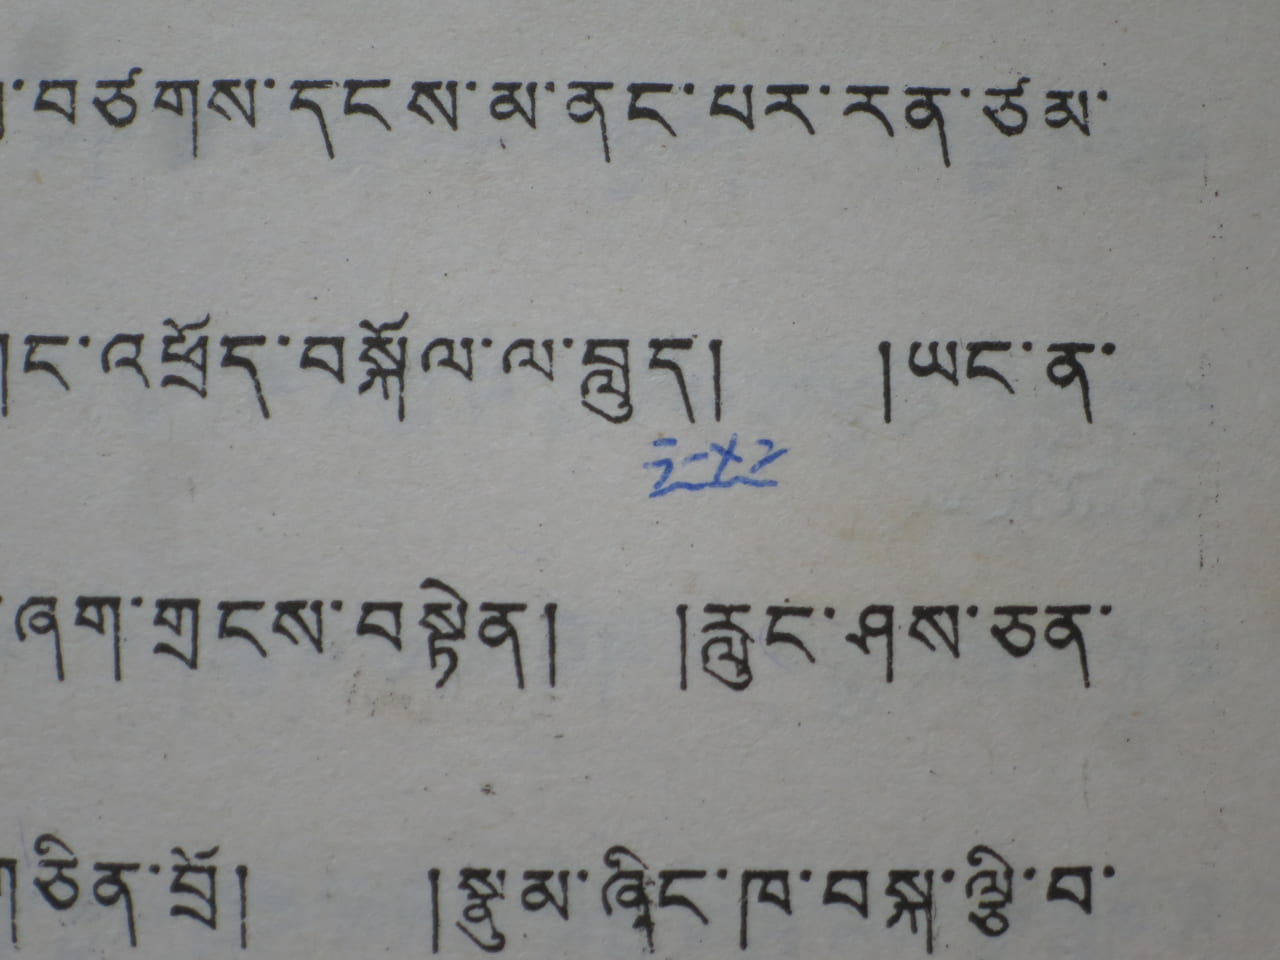 ་བཙགས་དངས་མ་ནང་པར་རན་ཙམ་
།ང་འཕྲོད་བསྐོལ་ལ་བླུད། །ཡང་ན་
་ཞག་གྲངས་བསྟེན། །རླུང་ཤས་ཅན་
གཅིན་བྲོ། །སྣུམ་ཞིང་ཁ་བསྐ་ལྕི་བ་